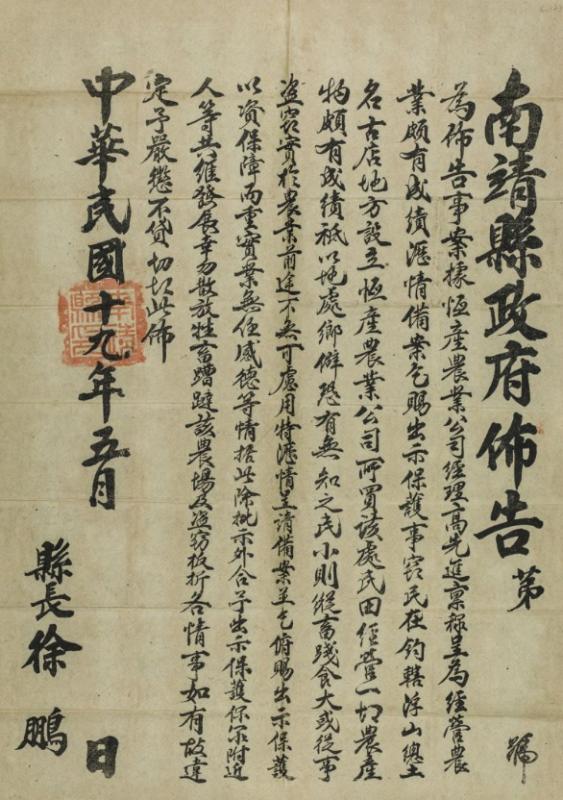 南靖縣政府佈告 第 號
為佈告事案據恒產農業公司經理高先進稟稱呈為經營農
業頗有成績瀝情備案乞賜出示保護事竊民在鈞轄浮山總土
名古店地方設立恒產農業公司所買該處民田經營一切農產
物頗有成績祇以地處鄉僻恐有無知之民小則縱畜踐食大或從事
盜竊實於農業前途不無可慮用特瀝情呈請備案並乞俯賜出示保護
以資保障而重實業無任感德等情据此除批示外合予出示保護仰爾附近
人等共維發展幸勿散放牲畜蹧蹋該農場及盜竊扳折各情事如有故違
定予嚴懲不貸切切此佈
中華民國十九年五月 日
縣長徐鵬